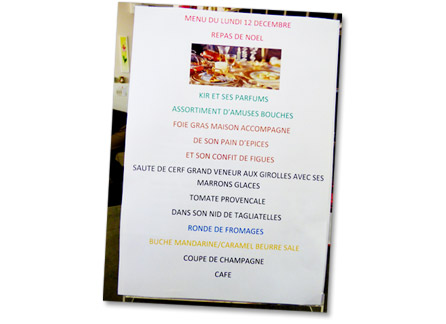 MENU DU LUNDI 12 DECEMBRE
REPAS DE NOEL
KIR ET SES PARFUMS
ASSORTIMENT D'AMUSES BOUCHES
FOIE GRAS MAISON ACCOMPAGNE
DE SON PAIN D'EPICES
ET SON CONFIT DE FIGUES
SAUTE DE CERF GRAND VENEUR AUX GIROLLES AVEC SES
MARRONS GLACES
TOMATE PROVENCALE
DANS SON NID DE TAGLIATELLES
RONDE DE FROMAGES
BUCHE MANDARINE/CARAMEL BEURRE SALE
COUPE DE CHAMPAGNE
CAFE